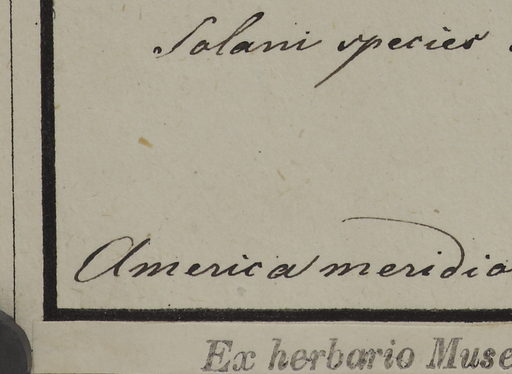 Solani species
America meridio
Ex herbario Muse